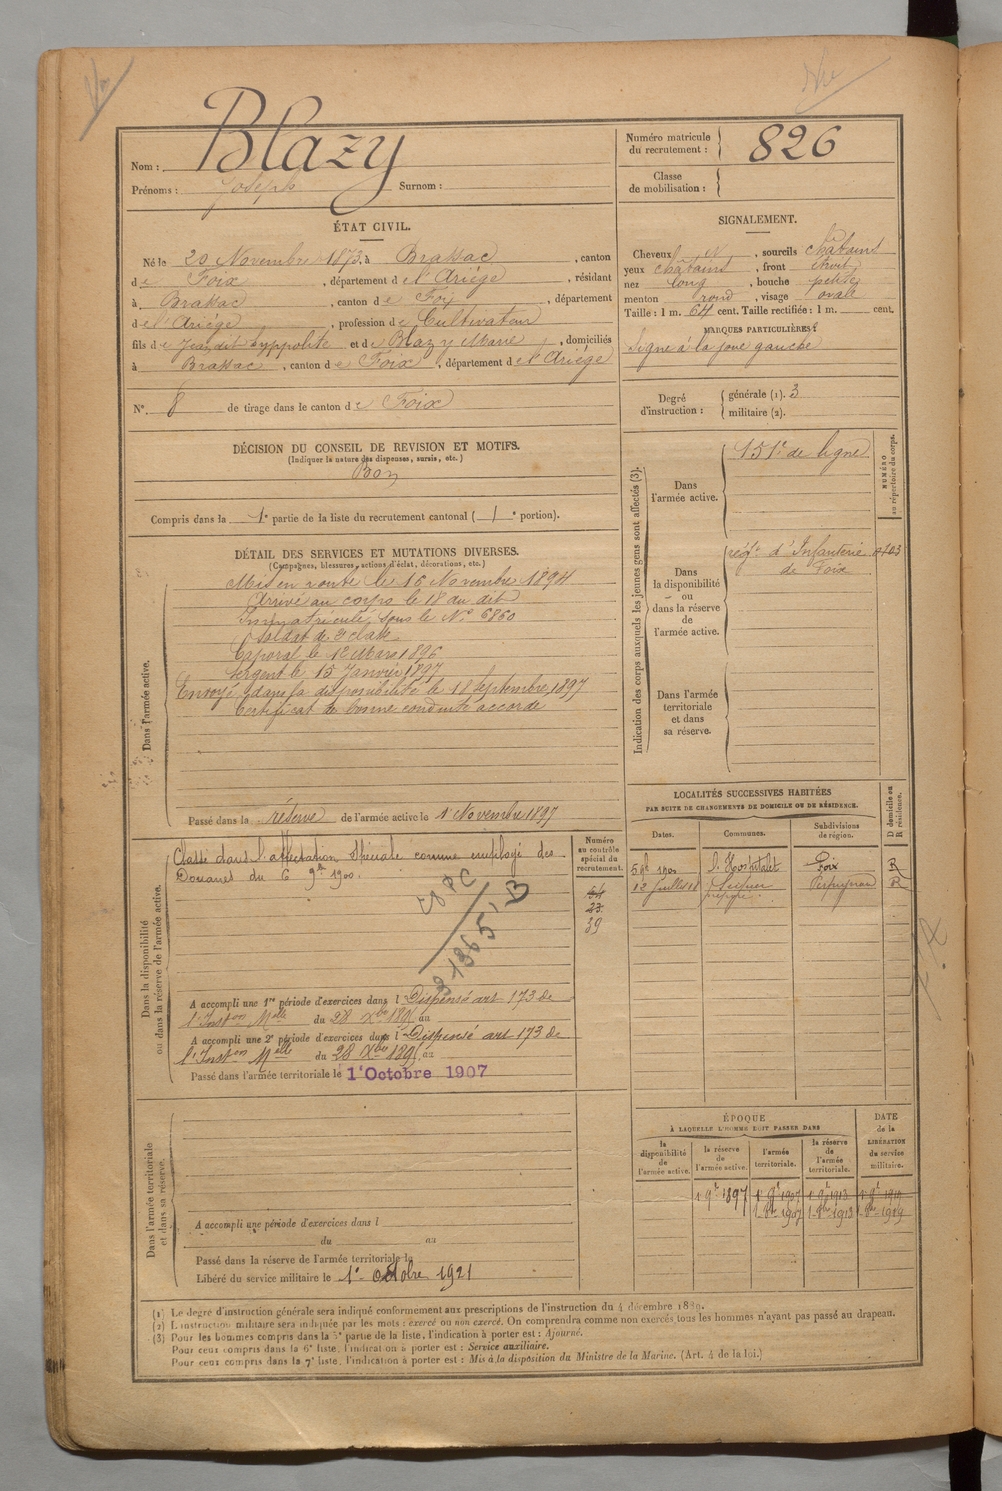 Vu
Blazy
Nom :
Prénoms : Joseph Surnom :
Numéro matricule du recrutement : 826
Classe de mobilisation :
ÉTAT CIVIL.
Né le 20 Novembre 1873, à Brassac, canton
de Foix, département de l'Ariège, résidant
à Brassac, canton de Foix, département
de l'Ariège, profession de Cultivateur
fils de Jean dit hyppolite et de Blazy Marie, domiciliés
à Brassac, canton de Foix, département de l'Ariège
N° 8 de tirage dans le canton de Foix
SIGNALEMENT.
Cheveux, sourcils châtains
yeux châtains, front étroit
nez long, bouche petite
menton rond, visage ovale
Taille : 1 m. 64 cent. Taille rectifiée : 1 m. cent.
MARQUES PARTICULIÈRES :
Signe à la joue gauche
Degré d'instruction : générale (1). 3
militaire (2).
DÉCISION DU CONSEIL DE REVISION ET MOTIFS.
(Indiquer la nature des dispenses, sursis, etc.)
Bon
Compris dans la 1e partie de la liste du recrutement cantonal ( 1e portion).
DÉTAIL DES SERVICES ET MUTATIONS DIVERSES.
(Campagnes, blessures, actions d'éclat, décorations, etc.)
Dans l'armée active.
Mis en route le 16 Novembre 1894
Arrivé au corps le 18 du dit
Immatriculé sous le N° 6860
Soldat de 2e classe
Caporal le 12 Mars 1896
Sergent le 15 Janvier 1897
Envoyé dans la disponibilité le 18 Septembre 1897
Certificat de bonne conduite accordé
Passé dans la réserve de l'armée active le 1 Novembre 1897
Indication des corps auxquels les jeunes gens sont affectés (3).
NUMÉRO au répertoire du corps.
Dans l'armée active.
151e de ligne
Dans la disponibilité ou dans la réserve de l'armée active.
régt d'Infanterie
de Foix
Dans l'armée territoriale et dans sa réserve.
Dans la disponibilité ou dans la réserve de l'armée active.
Classé dans l'affectation spéciale comme employé des
Douanes du 6 9bre 1900.
Numéro au contrôle spécial du recrutement.
23
39
A accompli une 1re période d'exercices dans l Dispensé art 173 de
l'Inston Melle du 28 Xbre 1895 au
A accompli une 2e période d'exercices dans l Dispensé art 173 de
l'Inston Melle du 28 Xbre 1895 au
Passé dans l'armée territoriale le 1er Octobre 1907
LOCALITÉS SUCCESSIVES HABITÉES
PAR SUITE DE CHANGEMENTS DE DOMICILE OU DE RÉSIDENCE.
Dates. Communes. Subdivisions de région. D domicile ou R résidence.
l'Hospitalet Foix R
Perpignan R
Dans l'armée territoriale et dans sa réserve.
A accompli une période d'exercices dans l
du au
Passé dans la réserve de l'armée territoriale le
Libéré du service militaire le 1er octobre 1921
ÉPOQUE
À LAQUELLE L'HOMME DOIT PASSER DANS
la disponibilité de l'armée active. la réserve de l'armée active. l'armée territoriale. la réserve de l'armée territoriale.
DATE de la LIBÉRATION du service militaire.
1 9bre 1897 1 9bre 1907 1 9bre 1913 1 9bre 1919
1 8bre 1907 1 8bre 1913 1 8bre 1919
(1) Le degré d'instruction générale sera indiqué conformément aux prescriptions de l'instruction du 4 décembre 1889.
(2) L'instruction militaire sera indiquée par les mots : exercé ou non exercé. On comprendra comme non exercés tous les hommes n'ayant pas passé au drapeau.
(3) Pour les hommes compris dans la 5e partie de la liste, l'indication à porter est : Ajourné.
Pour ceux compris dans la 6e liste, l'indication à porter est : Service auxiliaire.
Pour ceux compris dans la 7e liste, l'indication à porter est : Mis à la disposition du Ministre de la Marine. (Art. 4 de la loi.)